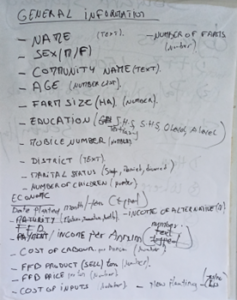 GENERAL INFORMATION
- NAME (TEXT). - NUMBER OF FARMS (Number)
- SEX (M/F)
- COMMUNITY NAME (TEXT).
- AGE (NUMBER).
- FARM SIZE (HA) (NUMBER).
- EDUCATION (J.H.S, S.H.S, O Level, A Level)
- MOBILE NUMBER
- DISTRICT (TEXT).
- MARITAL STATUS (Single, Married, Divorced)
- NUMBER OF CHILDREN (Number)
ECONOMIC
Date planting month/
MATURITY - INCOME OF ALTERNATIVE
FFB
PAYMENT / INCOME per Annum
- COST OF LABOUR per (Number)
- FFB PRODUCT (SELL) ton (Number)
- FFB PRICE (Number)
- COST OF INPUTS (Number) - New planting